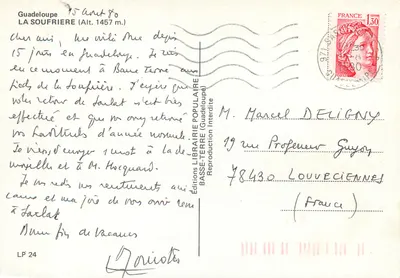 Guadeloupe
LA SOUFRIERE (Alt. 1457 m.)
15 août 80
cher ami, me voilà Mue depuis
15 jours en Guadeloupe. Je suis
en ce moment à Basse Terre aux
pieds de la Soufrière. J'espère que
votre retour de Sarlat s'est très
effectué et que vous avez retrouvé
vos habitudes d'année normale.
Je viens d'envoyer 1 mot à la de-
moiselles et à M. Hocquard.
Je vous redis mes remerciements
et ma joie de vous avoir revu
à Sarlat
Bonne fin de vacances
LP 24
Éditions LIBRAIRIE POPULAIRE
BASSE-TERRE (Guadeloupe)
Reproduction Interdite
FRANCE
1,30
971
M. Marcel DELIGNY
19 rue Professeur Guyon
78430 LOUVECIENNES
(France)